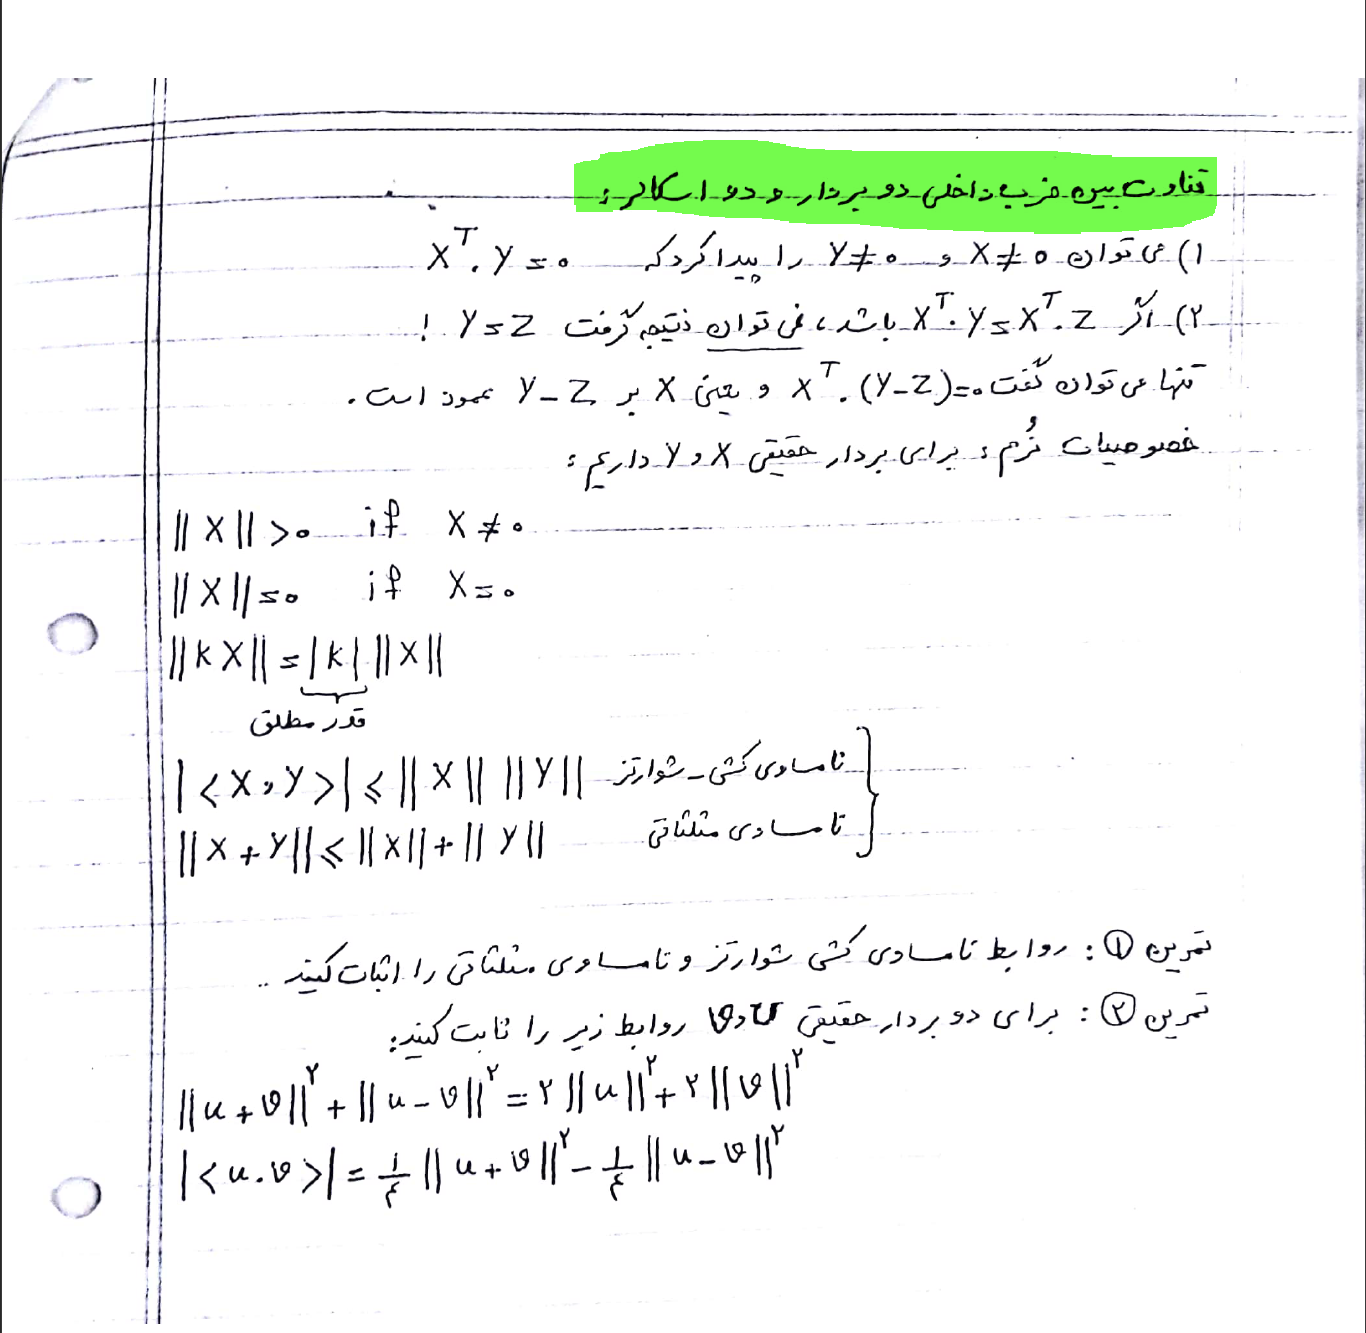 تفاوت بین ضرب داخلی دو بردار و دو اسکالر :
۱) می توان X ≠ 0 و Y ≠ 0 را پیدا کرد که Xᵀ . Y = 0
۲) اگر Xᵀ . Y = Xᵀ . Z باشد ، نمی توان نتیجه گرفت Y = Z !
تنها می توان گفت Xᵀ . (Y - Z) = 0 و یعنی X بر Y - Z عمود است .
خصوصیات نُرم : برای بردار حقیقی X و Y داریم :
|| X || > 0 if X ≠ 0
|| X || = 0 if X = 0
|| k X || = | k | || X ||
قدر مطلق
| < X , Y > | ⩽ || X || || Y || نامساوی کشی - شوارتز
|| X + Y || ⩽ || X || + || Y || نامساوی مثلثاتی
تمرین ① : روابط نامساوی کشی شوارتز و نامساوی مثلثاتی را اثبات کنید ..
تمرین ② : برای دو بردار حقیقی u و v روابط زیر را ثابت کنید :
|| u + v ||² + || u - v ||² = ۲ || u ||² + ۲ || v ||²
| < u . v > | = ۱/۴ || u + v ||² - ۱/۴ || u - v ||²